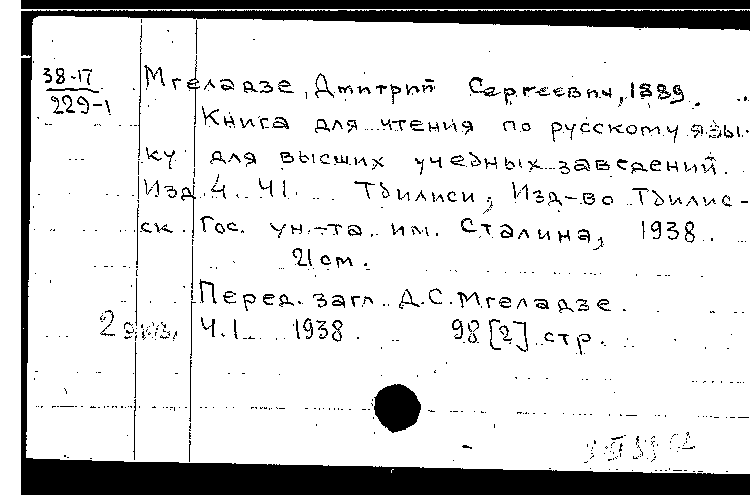 38-17
229-1
Мгеладзе, Дмитрий Сергеевич, 1889.
Книга для чтения по русскому язы-
ку для высших учебных заведений.
Изд. 4. Ч1. Тбилиси, Изд-во Тбилис-
ск. Гос. ун-та им. Сталина, 1938.
21 см.
Перед. загл. Д.С. Мгеладзе.
2 экз. Ч.1 1938. 98 [2] стр.